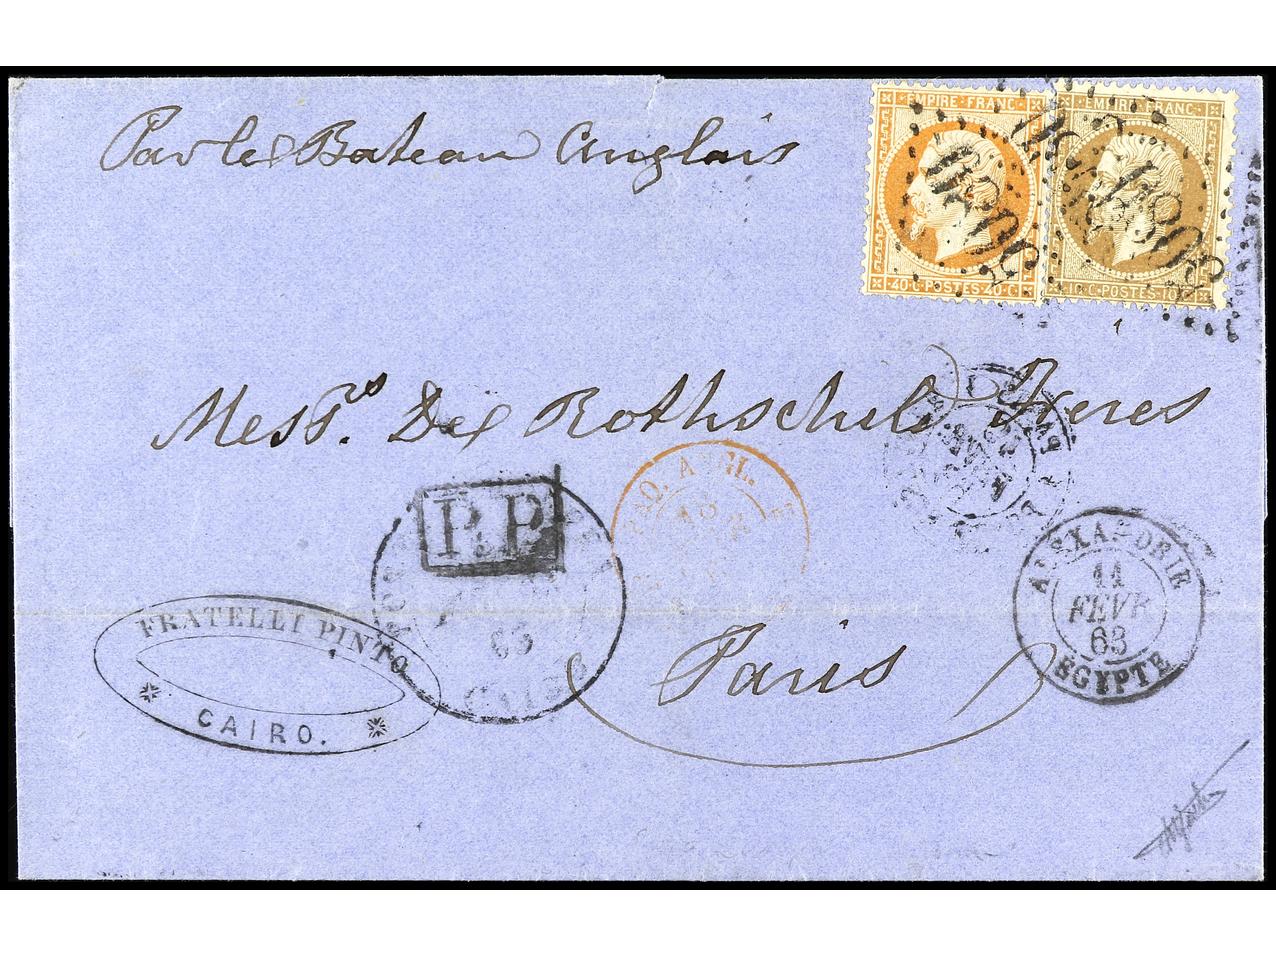 Par le Bateau Anglais
EMPIRE FRANC
40 C POSTES 40 C
EMPIRE FRANC
10 C POSTES 10
Messrs. De Rothschild Freres
P.P.
PAQ. ANGL.
ALEXANDRIE
11
FEVR
63
EGYPTE
63
Paris
FRATELLI PINTO
CAIRO.